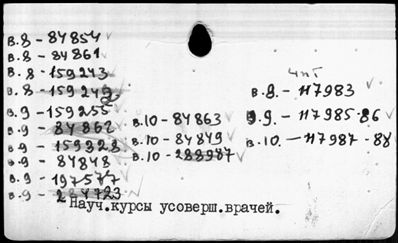 в.8 - 84854
в.8 - 84861
в.8 - 159243
в.8 - 159249
в.9 - 159255
в.9 - 84862
в.9 - 159328
в.9 - 84848
в.9 - 197577
в.9 - 284723
в.10 - 84863
в.10 - 84849
в.10 - 288987
чит
в.9. - 117983
в.9. - 117985-86
в.10. - 117987-88
Науч.курсы усоверш.врачей.